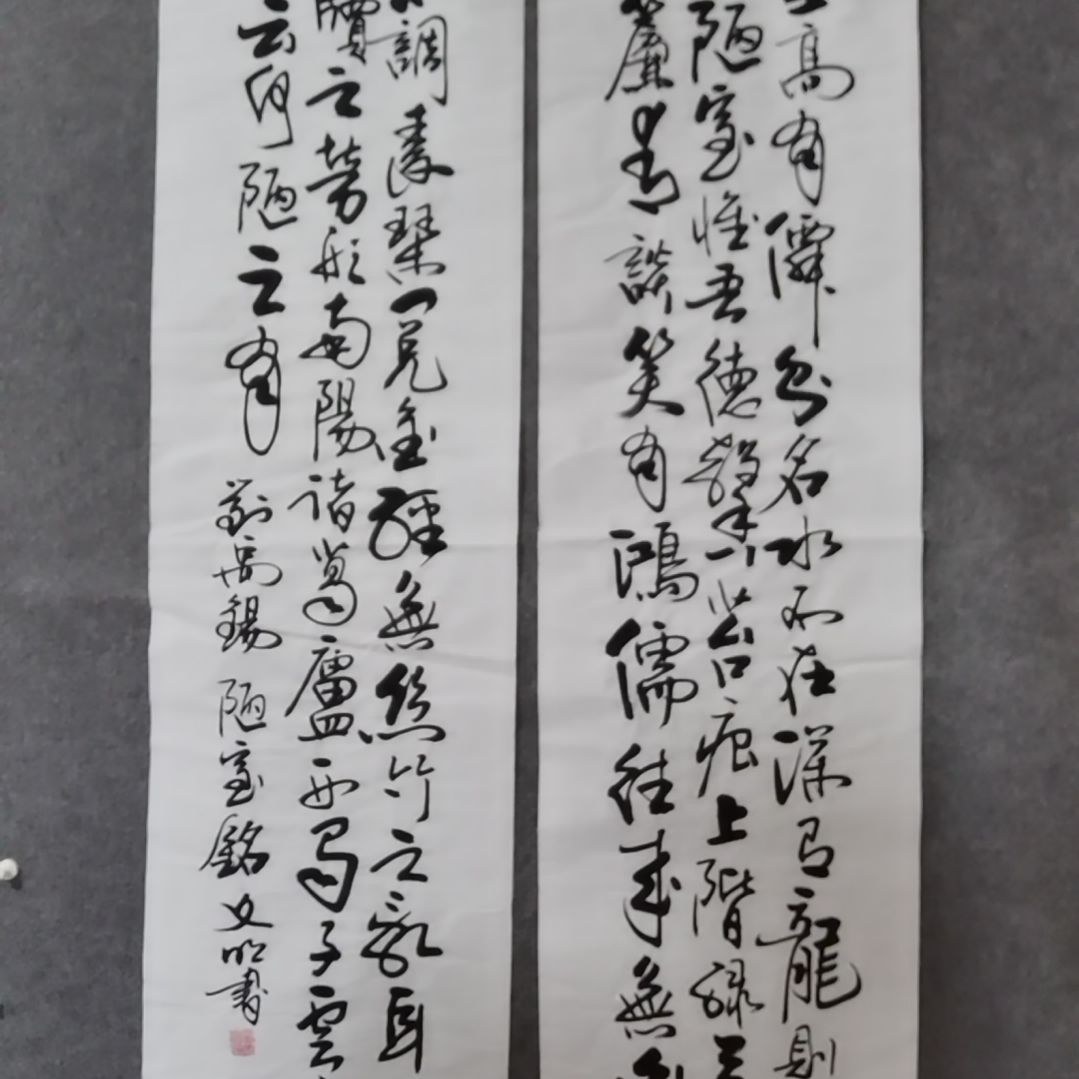 高有僊則名水不在深有龍則
陋室惟吾德馨苔痕上階綠
簾青談笑有鴻儒往來無
調素琴閱金經無絲竹之亂耳
牘之勞形南陽諸葛廬西蜀子雲
云何陋之有 劉禹錫 陋室銘 文明書